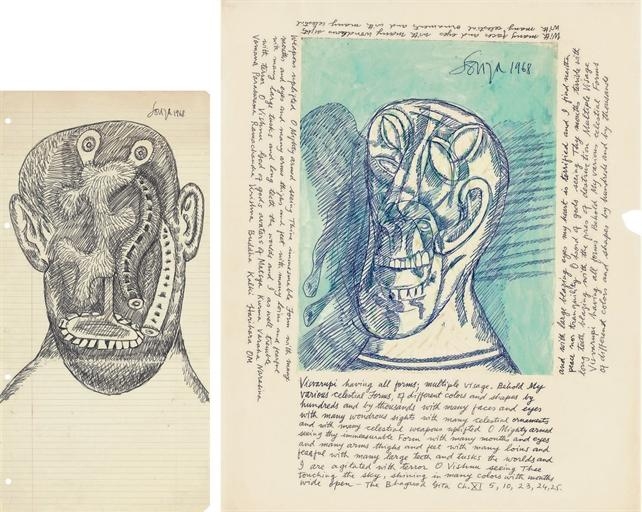 Souza 1968
With many faces and eyes with many wondrous sights
with many celestial ornaments and with many celestial
Weapons uplifted O Mighty armed seeing Thine immesurable Form with many
mouths and eyes and many arms thighs and feet with many loins and fearful
with many large tusks and long teeth the worlds and I as well tremble
with terror O Vishnu God of gods avatars of Matsya Kurma Varaha Narasima
Vamana Parasurama Ramachandra Krishna Buddha Kalki Harihara OM
Souza 1968
and with large blazing eyes my heart is terrified and I find neither
peace nor tranquility O Lord of gods seeing Thy mouths terrible with
long teeth blazing with the fires of destruction Multiple Visage
Visvarupi having all forms Behold My various celestial Forms
of different colors and shapes by hundreds and by thousands
Visvarupi having all forms; multiple visage. Behold My
various celestial Forms, of different colors and shapes by
hundreds and by thousands with many faces and eyes
with many wondrous sights with many celestial ornaments
and with many celestial weapons uplifted O Mighty armed
seeing thy immesurable Form with many mouths and eyes
and many arms thighs and feet with many loins and
fearful with many large teeth and tusks the worlds and
I are agitated with terror O Vishnu seeing Thee
touching the sky, shining in many colors with mouths
wide open - The Bhagvad Gita Ch. XI 5, 10, 23, 24, 25.